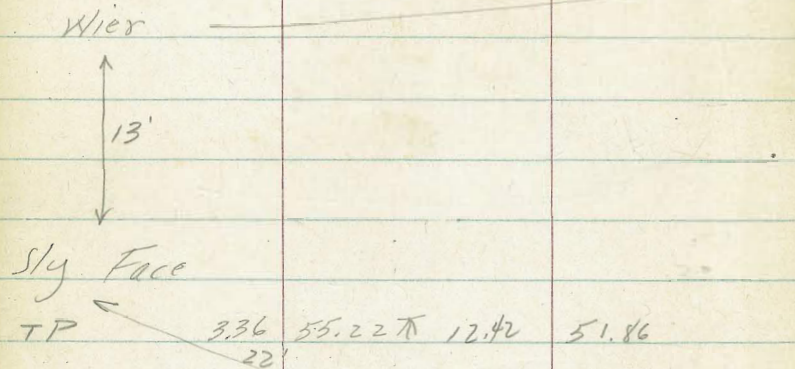 Wier
13'
Sly Face
TP 3.36 55.22 ⊼ 12.42 51.86
22'